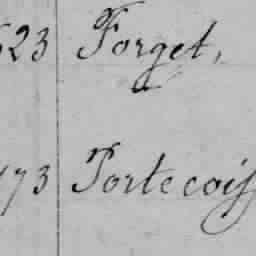 623 Forget,
173 Portecoiff